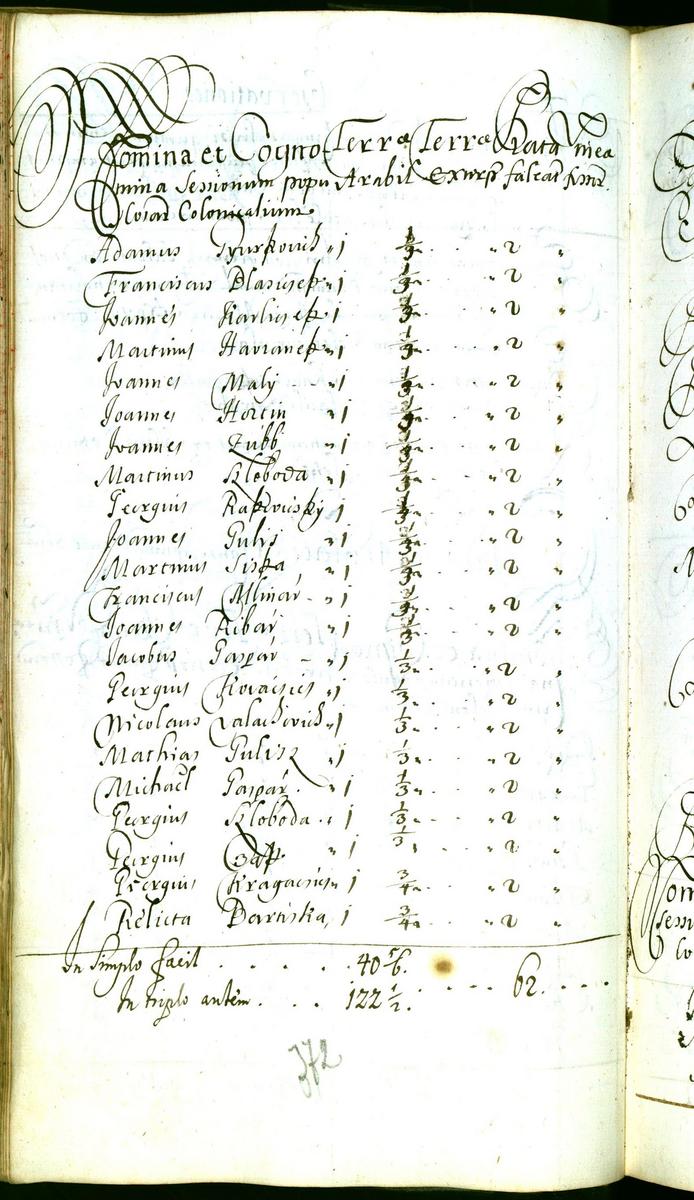 Nomina et Cogno- Terræ Terræ Prata Vinea
mina Sessionum popu Arabil Exurs falcat
losar Colonicalium
Adamus Jurkovich „ 1 „ 2 „
Franciscus Blasisek „ 1 „ 2 „
Joannes Karlicsek „ 1 „ 2 „
Martinus Havranek „ 1 „ 2 „
Joannes Maly „ 1 „ 2 „
Joannes Hortin „ 1 „ 2 „
Joannes Zubb „ 1 „ 2 „
Martinus Szloboda „ 1 „ 2 „
Georgius Rakoviczky „ 1 „ 2 „
Joannes Gulis „ 1 „ 2 „
Martinus Siska „ 1 „ 2 „
Franciscus Mlinar „ 1 „ 2 „
Joannes Ribár „ 1 „ 2 „
Jacobus Gaspár „ 1 1/3 „ 2 „
Georgius Kovacsics „ 1 1/3 „ 2 „
Nicolaus Valachovich „ 1 1/3 „ 2 „
Mathias Gulisz „ 1 1/3 „ 2 „
Michaël Gaspár „ 1 1/3 „ 2 „
Georgius Szloboda „ 1 1/3 „ 2 „
Georgius Csap „ 1 1/3 „ 2 „
Georgius Kragacsics „ 1 3/4 „ 2 „
Relicta Bartiska „ 1 3/4 „ 2 „
In Simplo facit . . . . . 40 5/6.
In triplo autem . . . 122 1/2. . . . . 62. . . .
372